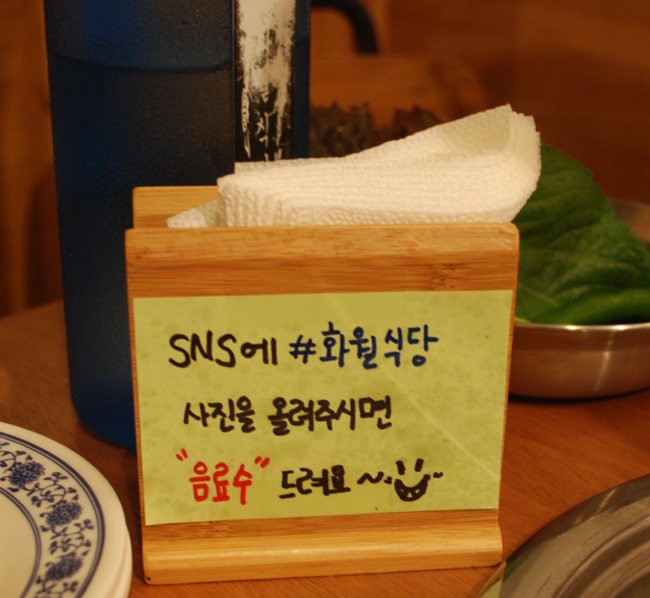 SNS에 #화월식당
사진을 올려주시면
"음료수" 드려요~